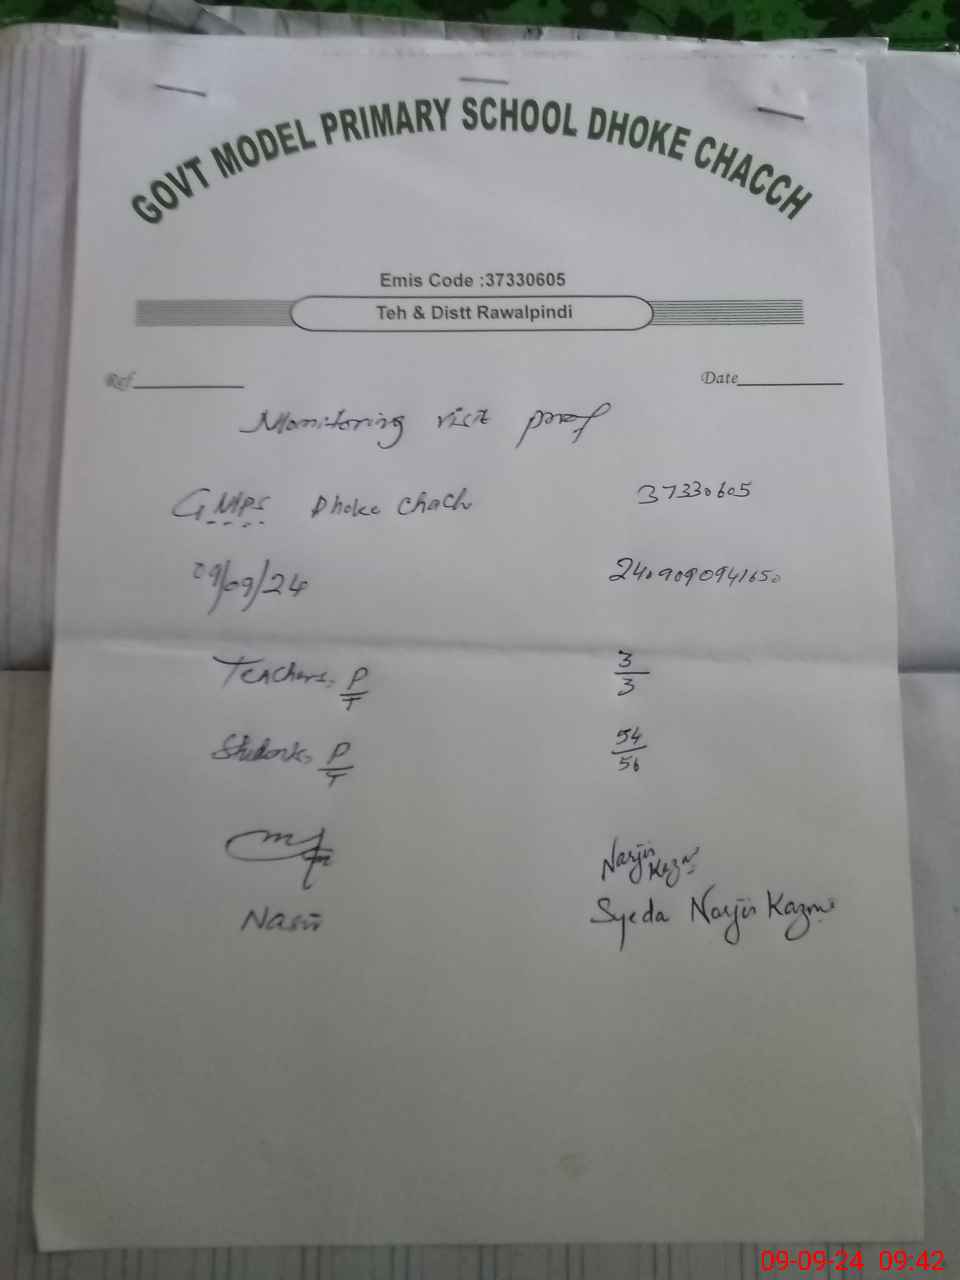 GOVT MODEL PRIMARY SCHOOL DHOKE CHACCH
Emis Code :37330605
Teh & Distt Rawalpindi
Ref Date
Monitoring visit proof
GMPS Dhoke Chach 37330605
09/09/24 2409090941650
Teachers. P/T 3/3
Students, P/T 54/56
Narjis Kazmi
Nasir Syeda Narjis Kazmi
09-09-24 09:42